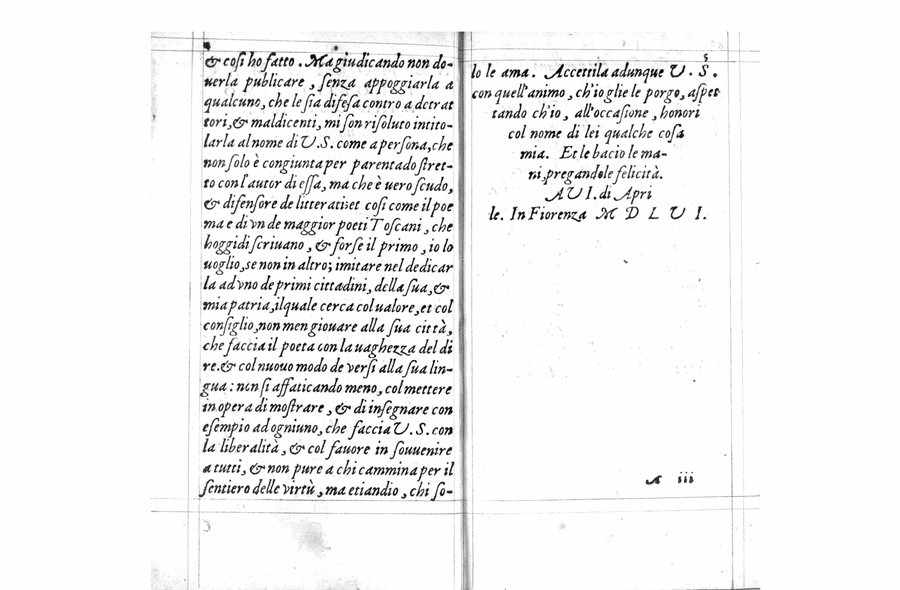 & cosi ho fatto. Ma giudicando non do-
uerla publicare, senza appoggiarla a
qualcuno, che le sia difesa contro a detrat
tori, & maldicenti, mi son risoluto intito-
larla al nome di V. S. come a persona, che
non solo è congiunta per parentado stret-
to con l'autor di essa, ma che è uero scudo,
& difensore de litterati: et cosi come il poe
ma e di vn de maggior poeti Toscani, che
hoggidi scriuano, & forse il primo, io lo
uoglio, se non in altro; imitare nel dedicar
la ad vno de primi cittadini, della sua, &
mia patria, ilquale cerca col ualore, et col
consiglio, non men giouare alla sua città,
che faccia il poeta con la uaghezza del di
re. & col nuouo modo de versi alla sua lin-
gua: non si affaticando meno, col mettere
in opera di mostrare, & di insegnare con
esempio ad ogniuno, che faccia V. S. con
la liberalità, & col fauore in souuenire
a tutti, & non pure a chi cammina per il
sentiero delle virtù, ma etiandio, chi so-
5
lo le ama. Accettila adunque V. S.
con quell'animo, ch'io glie le porgo, aspet
tando ch'io, all'occasione, honori
col nome di lei qualche cosa
mia. Et le bacio le ma-
ni, pregandole felicità.
A VI. di Apri
le. In Fiorenza M D L V I.
A iii